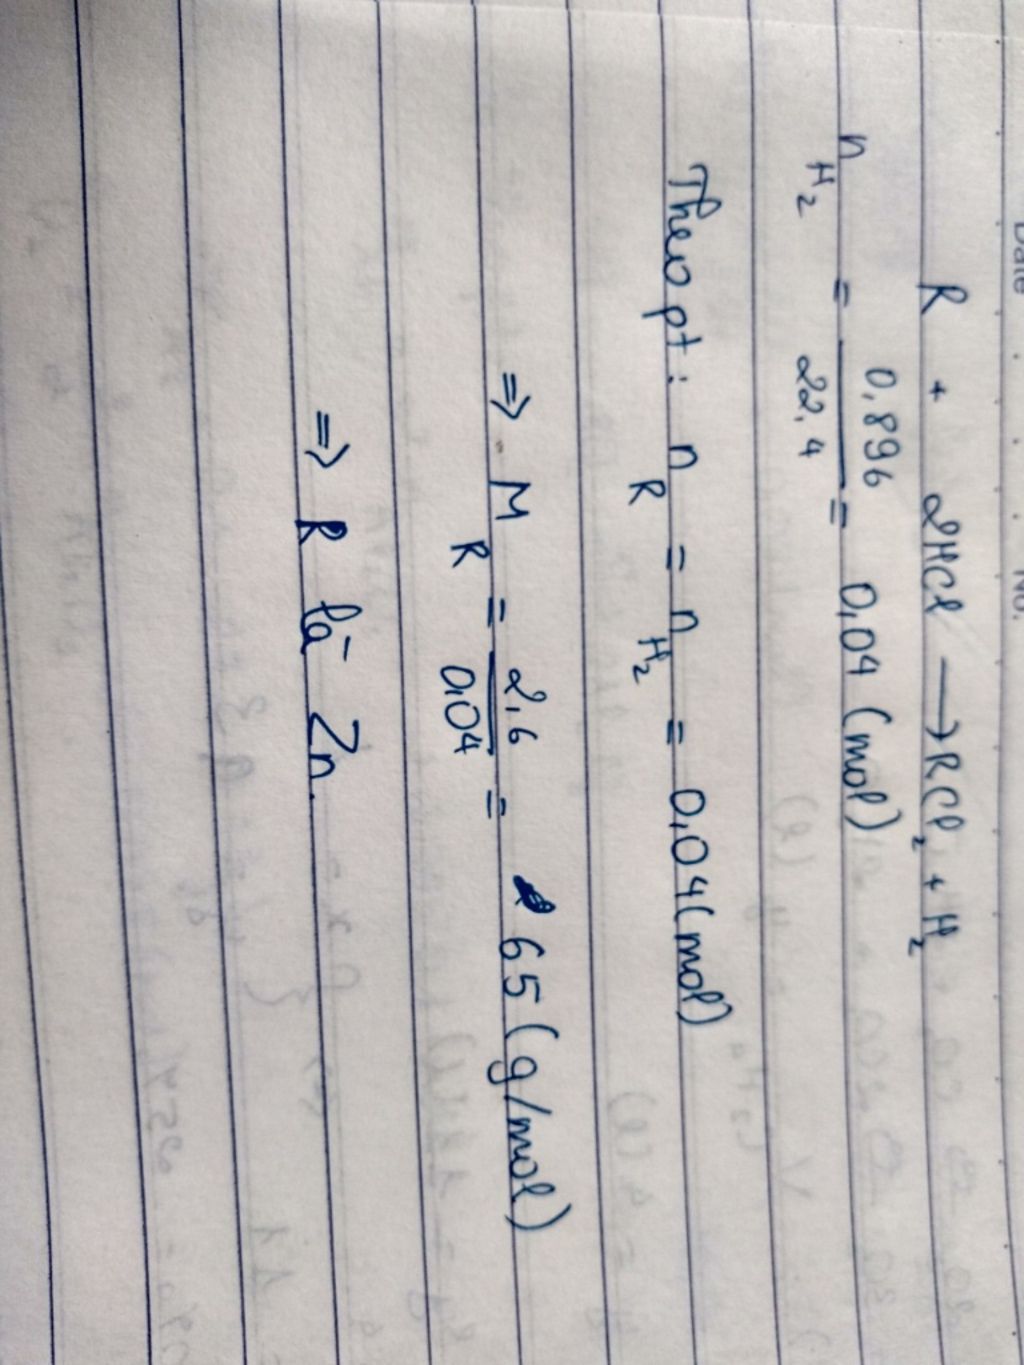 Date No.
R + 2HCl → RCl₂ + H₂
n_H₂ = 0,896/22,4 = 0,04 (mol)
Theo pt: n_R = n_H₂ = 0,04 (mol)
⇒ M_R = 2,6/0,04 = 65 (g/mol)
⇒ R là Zn.